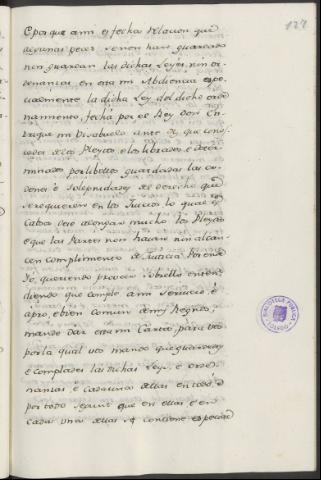 127
E por que a mi es fecha relacion que
algunas veces se non han guardado
nin guardan las dichas Leyes, nin or-
denanzas en esta mi Abdiencia espe-
cialmente la dicha Ley del dicho orde-
namiento, fecha por el Rey don En-
rique mi Visabuelo ante de que conos-
cades de los Pleytos, e los librades, e deter-
minades por libellos guardadas las or-
denes e solepnidades de derecho que
se requieren en los Juicios lo qual es
Cabsa deso alongan mucho los Pleytos
e que las Partes non hayan nin alcan-
cen complimiento de Justicia Por ende
Yo, queriendo proveer sobrello enten-
diendo que comple a mi servicio, e
a pro, e bien comun de mis Regnos,
mandé dar esta mi Carta, para vos
por la qual vos mando que guardedes
e complades las dichas Leyes, e orde-
nanzas, e cada una dellas en todo, e
por todo segunt que en ellas e en
cada una dellas se contiene especial
BIBLIOTECA PUBLICA
TOLEDO